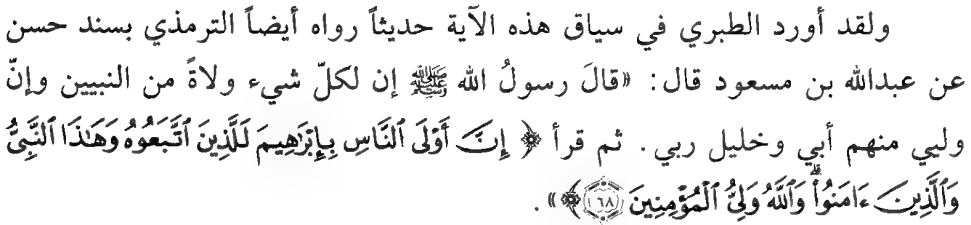 ولقد أورد الطبري في سياق هذه الآية حديثاً رواه أيضاً الترمذي بسند حسن
عن عبدالله بن مسعود قال: «قالَ رسولُ الله ﷺ إن لكلّ شيء ولاةً من النبيين وإنّ
وليي منهم أبي وخليل ربي. ثم قرأ ﴿ إِنَّ أَوْلَى ٱلنَّاسِ بِإِبْرَٰهِيمَ لَلَّذِينَ ٱتَّبَعُوهُ وَهَٰذَا ٱلنَّبِىُّ
وَٱلَّذِينَ ءَامَنُوا۟ۗ وَٱللَّهُ وَلِىُّ ٱلْمُؤْمِنِينَ ٦٨﴾».